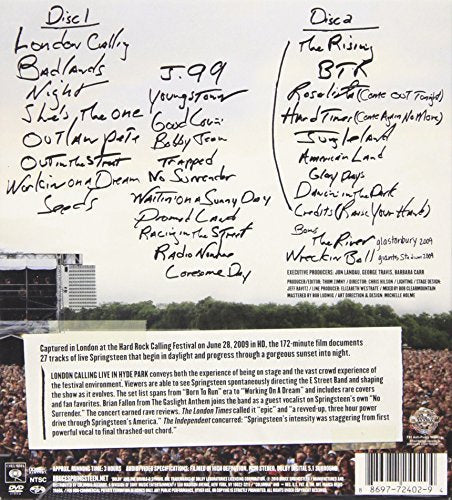 Disc 1
London Calling
Badlands
Night
She's The One
Outlaw Pete
Out in the Street
Workin on a Dream
Seeds
J. 99
Youngstown
Good Lovin'
Bobby Jean
Trapped
No Surrender
Waitin' on a Sunny Day
Promised Land
Racing in the Street
Radio Nowhere
Lonesome Day
Disc 2
The Rising
BTR
Rosalita (Come Out Tonight)
Hard Times (Come Again No More)
Jungleland
American Land
Glory Days
Dancin in the Dark
Credits (Raise Your Hand)
Bonus
The River glastonbury 2009
Wreckin Ball giants Stadium 2009
EXECUTIVE PRODUCERS: JON LANDAU, GEORGE TRAVIS, BARBARA CARR
PRODUCER/EDITOR: THOM ZIMNY / DIRECTOR: CHRIS HILSON / LIGHTING / STAGE DESIGN:
JEFF RAVITZ / LINE PRODUCER: ELIZABETH WESTRATE / MIXED BY BOB CLEARMOUNTAIN
MASTERED BY BOB LUDWIG / ART DIRECTION & DESIGN: MICHELLE HOLME
Captured in London at the Hard Rock Calling Festival on June 28, 2009 in HD, the 172-minute film documents
27 tracks of live Springsteen that begin in daylight and progress through a gorgeous sunset into night.
LONDON CALLING LIVE IN HYDE PARK conveys both the experience of being on stage and the vast crowd experience of
the festival environment. Viewers are able to see Springsteen spontaneously directing the E Street Band and shaping
the show as it evolves. The set list spans from "Born To Run" era to "Working On A Dream" and includes rare covers
and fan favorites. Brian Fallon from The Gaslight Anthem joins the band as a guest vocalist on Springsteen's own "No
Surrender." The concert earned rave reviews. The London Times called it "epic" and "a revved-up, three hour power
drive through Springsteen's America." The Independent concurred: "Springsteen's intensity was staggering from first
powerful vocal to final thrashed-out chord."
COLUMBIA
DVD
NTSC
APPROX. RUNNING TIME: 3 HOURS AUDIO/VIDEO SPECIFICATIONS: FILMED IN HIGH DEFINITION, PCM STEREO, DOLBY DIGITAL 5.1 SURROUND
BRUCESPRINGSTEEN.NET
8 86977 2402 9 4